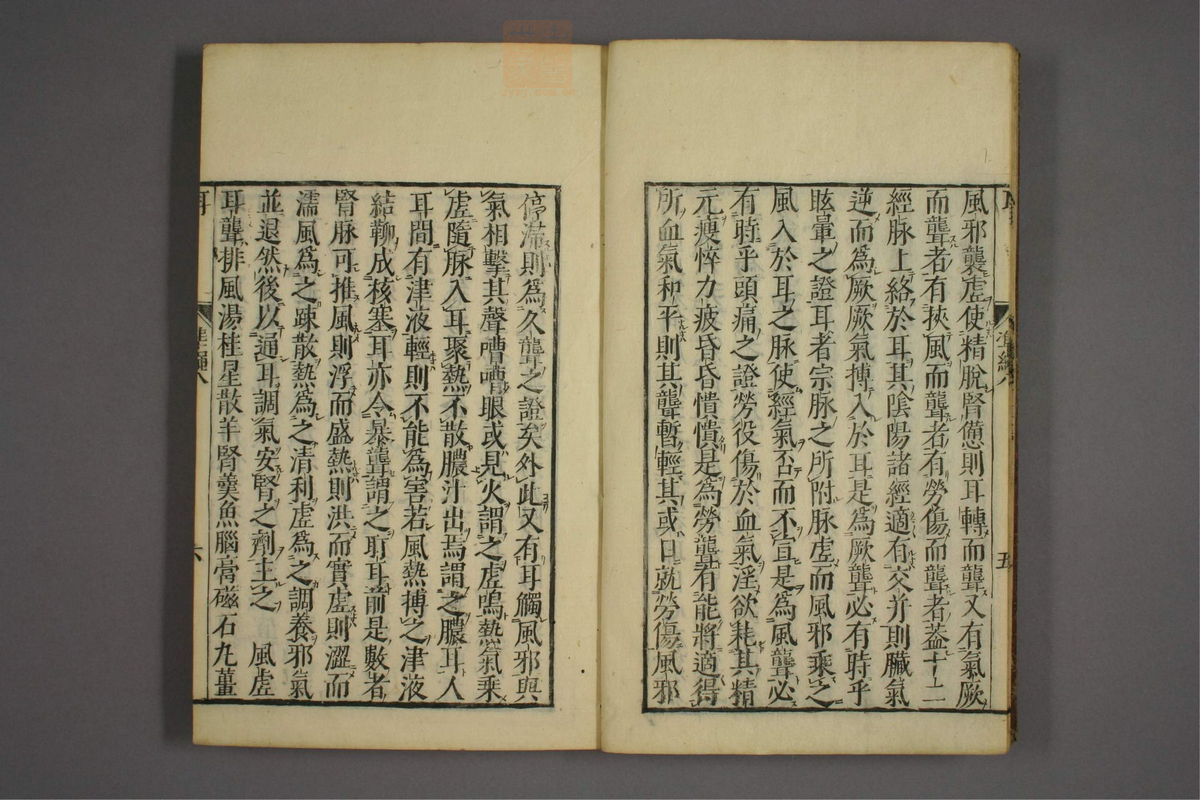 風邪襲虚使精脫腎憊則耳轉而聾又有氣厥
而聾者有挾風而聾者有勞傷而聾者蓋十二
經脉上絡於耳其隂陽諸經適有交并則臟氣
逆而爲厥厥氣搏入於耳是爲厥聾必有時乎
眩暈之證耳者宗脉之所附脉虚而風邪乘之
風入於耳之脉使經氣否而不宣是爲風聾必
有時乎頭痛之證勞役傷於血氣淫欲耗其精
元瘦悴力疲昏昏憒憒是爲勞聾有能將適得
所血氣和平則其聾暫輕其或日就勞傷風邪
五
停滯則爲久聾之證矣外此又有耳觸風邪與
氣相擊其聲嘈嘈眼或見火謂之虚鳴熱氣乘
虚隨脉入耳聚熱不散膿汁出焉謂之膿耳人
耳間有津液輕則不能爲害若風熱搏之津液
結鞕成核塞耳亦令暴聾謂之耵耳前是數者
腎脉可推風則浮而盛熱則洪而實虚則澀而
濡風爲之踈散熱爲之清利虚爲之調養邪氣
並退然後以通耳調氣安腎之劑主之　風虚
耳聾排風湯桂星散羊腎羮魚腦膏磁石九薑
耳
六